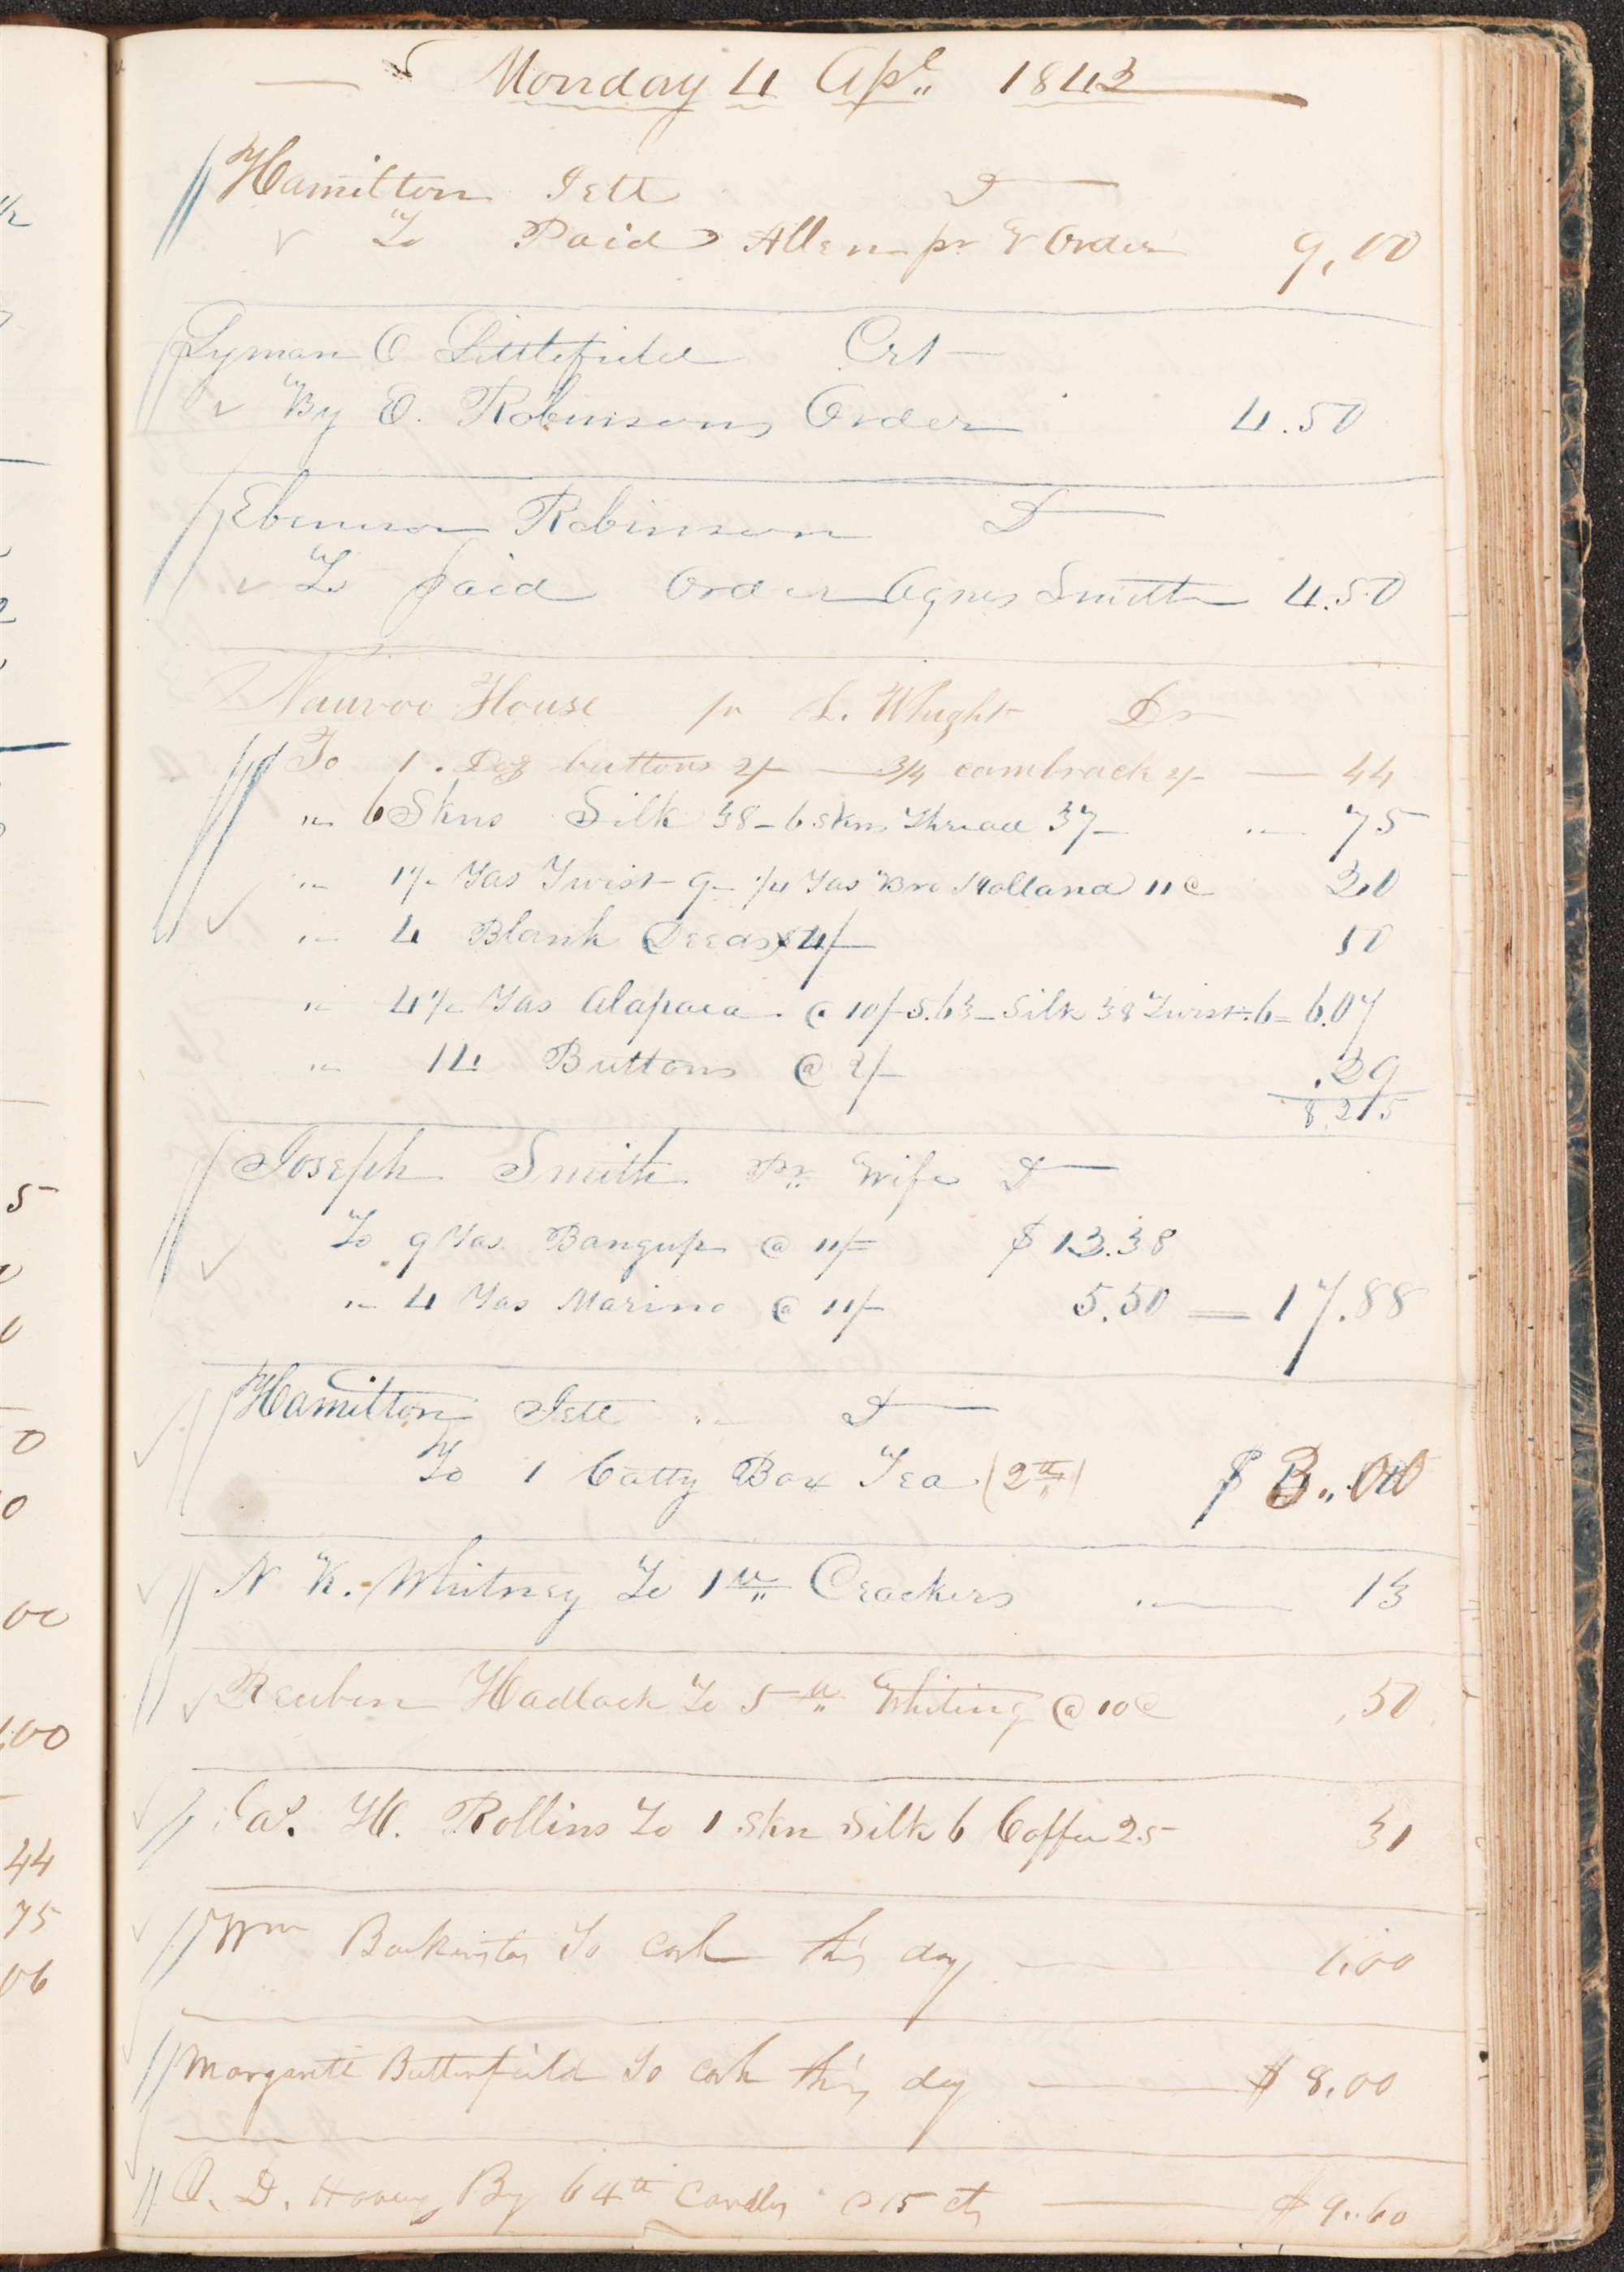 Monday 4 Apl. 1843
Hamilton Jett D
To Paid Allen pr Order 9,00
Lyman O Littlefield Crt
By E. Robinsons Order 4.50
Ebenezer Robinson D
To paid Order Agnes Smith 4.50
Nauvoo House pr L. Whight Dr
To 1. Doz buttons 2/- 3/4 cambrack 2/- 44
" 6 Skns Silk 38 - 6 skns Thread 37 75
" 1 1/2 Yds Twist 9 - 1/4 Yds Bro Holland 11c 20
" 4 Blank Deeds 4/ 50
" 4 1/2 Yds Alapaca @ 10/- 5.63 - Silk 38 Twist .6 = 6.07
" 14 Buttons @ 2/- .29
8.25
Joseph Smith Pr. Wife D
To 9 Yds Bangup @ 11/= $13.38
" 4 Yds Marino @ 11/- 5.50 = 17.88
Hamilton Jett D
To 1 Catty Box Tea (2 lb) $3.00
N K. Whitney To 1 lb Crackers 13
Reuben Hadlock To 5 lb Whiting @ 10c .50
Jas. H. Rollins To 1 Skn Silk 6 Coffee 25 31
Wm Backinstos To cash this day 1.00
Margarett Butterfield To cash this day $8.00
O. D. Hovey By 64 lb Candles @ 15 cts $9.60
5
00
100
44
75
06